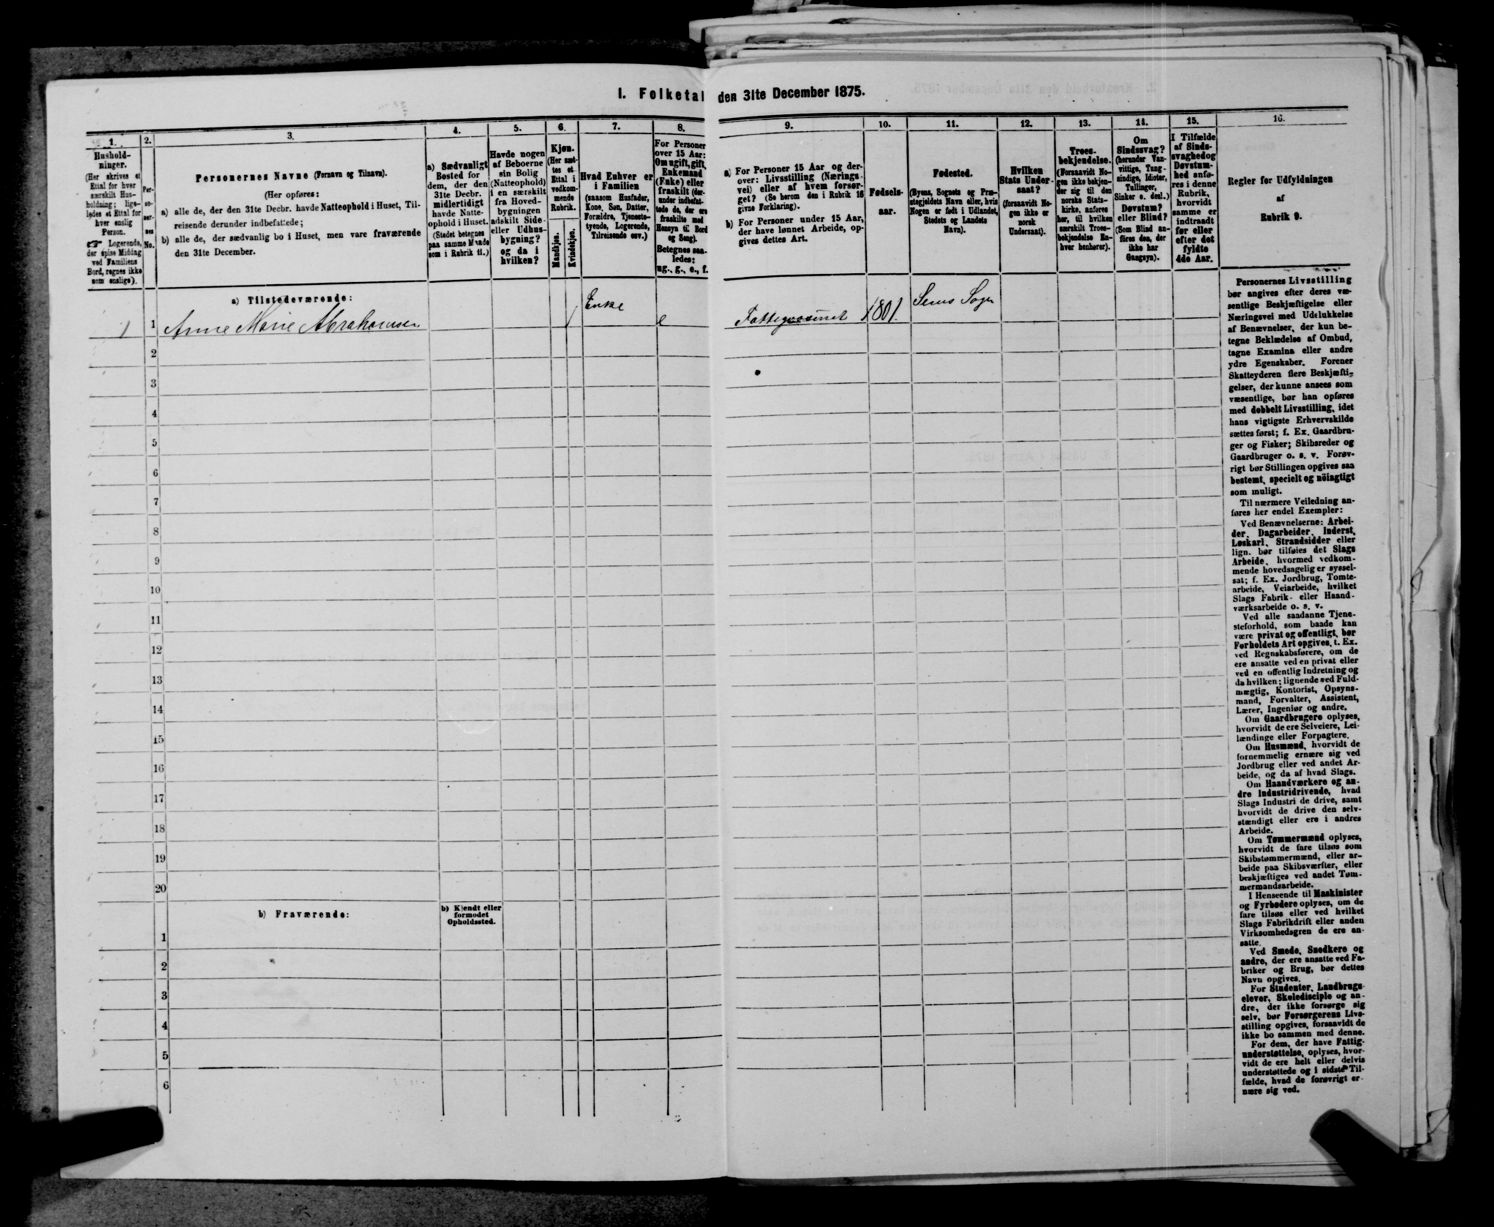 I. Folketal den 31te December 1875.
1.
Hushold-
ninger.
(Her skrives et
Ettal for hver
særskilt Hus-
holdning; lige-
ledes et Ettal for
hver enslig
Person.
☞ Logerende,
der spise Middag
ved Familiens
Bord, regnes ikke
som enslige).
2.
Per-
so-
ner-
nes
No.
3.
Personernes Navne (Fornavn og Tilnavn).
(Her opføres:
a) alle de, der den 31te Decbr. havde Natteophold i Huset, Til-
reisende derunder indbefattede;
b) alle de, der sædvanlig bo i Huset, men vare fraværende
den 31te December.
4.
a) Sædvanligt
Bosted for
dem, der den
31te Decbr.
midlertidigt
havde Natte-
ophold i Huset.
(Stedet betegnes
paa samme Maade
som i Rubrik 11.)
5.
Havde nogen
af Beboerne
sin Bolig
(Natteophold)
i en særskilt
fra Hoved-
bygningen
adskilt Side-
eller Udhus-
bygning?
og da i
hvilken?
6.
Kjøn.
(Her sæt-
tes et
Ettal i
vedkom-
mende
Rubrik.
Mandkjøn.
Kvindekjøn.
7.
Hvad Enhver er
i Familien
(saasom Husfader,
Kone, Søn, Datter,
Forældre, Tjeneste-
tyende, Logerende,
Tilreisende osv.)
8.
For Personer
over 15 Aar:
Om ugift, gift,
Enkemand
(Enke) eller
fraskilt (der-
under indbefat-
tede de, der ere
fraskilte med
Hensyn til Bord
og Seng).
Betegnes saa-
ledes:
ug., g., e., f.
9.
a) For Personer 15 Aar og der-
over: Livsstilling (Nærings-
vei) eller af hvem forsør-
get? (Se herom den i Rubrik 16
givne Forklaring).
b) For Personer under 15 Aar,
der have lønnet Arbeide, op-
gives dettes Art.
10.
Fødsels-
aar.
11.
Fødested.
(Byens, Sognets og Præ-
stegjeldets Navn eller, hvis
Nogen er født i Udlandet,
Stedets og Landets
Navn).
12.
Hvilken
Stats Under-
saat?
(Forsaavidt No-
gen ikke er
norsk
Undersaat).
13.
Troes-
bekjendelse.
(Forsaavidt No-
gen ikke bekjen-
der sig til den
norske Stats-
kirke, anføres
her, til hvilken
særskilt Troes-
bekjendelse En-
hver henhører).
14.
Om
Sindssvag?
(herunder Van-
vittige, Tung-
sindige, Idioter,
Tullinger,
Sinker o. desl.)
Døvstum?
eller Blind?
(Som Blind an-
føres den, der
ikke har
Gangsyn).
15.
I Tilfælde
af Sinds-
svaghed og
Døvstum-
hed anfø-
res i denne
Rubrik,
hvorvidt
samme er
indtraadt
før eller
efter det
fyldte
4de Aar.
16.
Regler for Udfyldningen
af
Rubrik 9.
a) Tilstedeværende:
1 1 Anne Marie Abrahamsen 1 Enke e Fattigvæsenet 1801. Sems Sogn
2
3
4
5
6
7
8
9
10
11
12
13
14
15
16
17
18
19
20
b) Fraværende:
b) Kjendt eller
formodet
Opholdssted.
1
2
3
4
5
6
Personernes Livsstilling
bør angives efter deres væ-
sentlige Beskjæftigelse eller
Næringsvei med Udelukkelse
af Benævnelser, der kun be-
tegne Beklædelse af Ombud,
tagne Examina eller andre
ydre Egenskaber. Forener
Skatteyderen flere Beskjæfti-
gelser, der kunne ansees som
væsentlige, bør han opføres
med dobbelt Livsstilling, idet
hans vigtigste Erhvervskilde
sættes først; f. Ex. Gaardbru-
ger og Fisker; Skibsreder og
Gaardbruger o. s. v. Forøv-
rigt bør Stillingen opgives saa
bestemt, specielt og nöiagtigt
som muligt.
Til nærmere Veiledning an-
føres her endel Exempler:
Ved Benævnelserne: Arbei-
der, Dagarbeider, Inderst,
Løskarl, Strandsidder eller
lign. bør tilføies det Slags
Arbeide, hvormed vedkom-
mende hovedsagelig er syssel-
sat; f. Ex. Jordbrug, Tomte-
arbeide, Veiarbeide, hvilket
Slags Fabrik- eller Haand-
værksarbeide o. s. v.
Ved alle saadanne Tjene-
steforhold, som baade kan
være privat og offentligt, bør
Forholdets Art opgives, t. Ex.
ved Regnskabsførere, om de
ere ansatte ved en privat eller
ved en offentlig Indretning og
da hvilken; lignende ved Fuld-
mægtig, Kontorist, Opsyns-
mand, Forvalter, Assistent,
Lærer, Ingeniør og andre.
Om Gaardbrugere oplyses,
hvorvidt de ere Selveiere, Lei-
lændinge eller Forpagtere.
Om Husmænd, hvorvidt de
fornemmelig ernære sig ved
Jordbrug eller ved andet Ar-
beide, og da af hvad Slags.
Om Haandværkere og an-
dre Industridrivende, hvad
Slags Industri de drive, samt
hvorvidt de drive den selv-
stændigt eller ere i andres
Arbeide.
Om Tømmermænd oplyses,
hvorvidt de fare tilsøs som
Skibstømmermænd, eller ar-
beide paa Skibsværfter, eller
beskjæftiges ved andet Tøm-
mermandsarbeide.
I Henseende til Maskinister
og Fyrbødere oplyses, om de
fare tilsøs eller ved hvilket
Slags Fabrikdrift eller anden
Virksomhedsgren de ere an-
satte.
Ved Smede, Snedkere og
andre, der ere ansatte ved Fa-
briker og Brug, bør dettes
Navn opgives.
For Studenter, Landbrugs-
elever, Skoledisciple og an-
dre, der ikke forsørge sig
selv, bør Forsørgerens Livs-
stilling opgives, forsaavidt de
ikke bo sammen med denne.
For dem, der have Fattig-
understøttelse, oplyses, hvor-
vidt de ere helt eller delvis
understøttede og i sidste Til-
fælde, hvad de forøvrigt er-
nære sig ved.